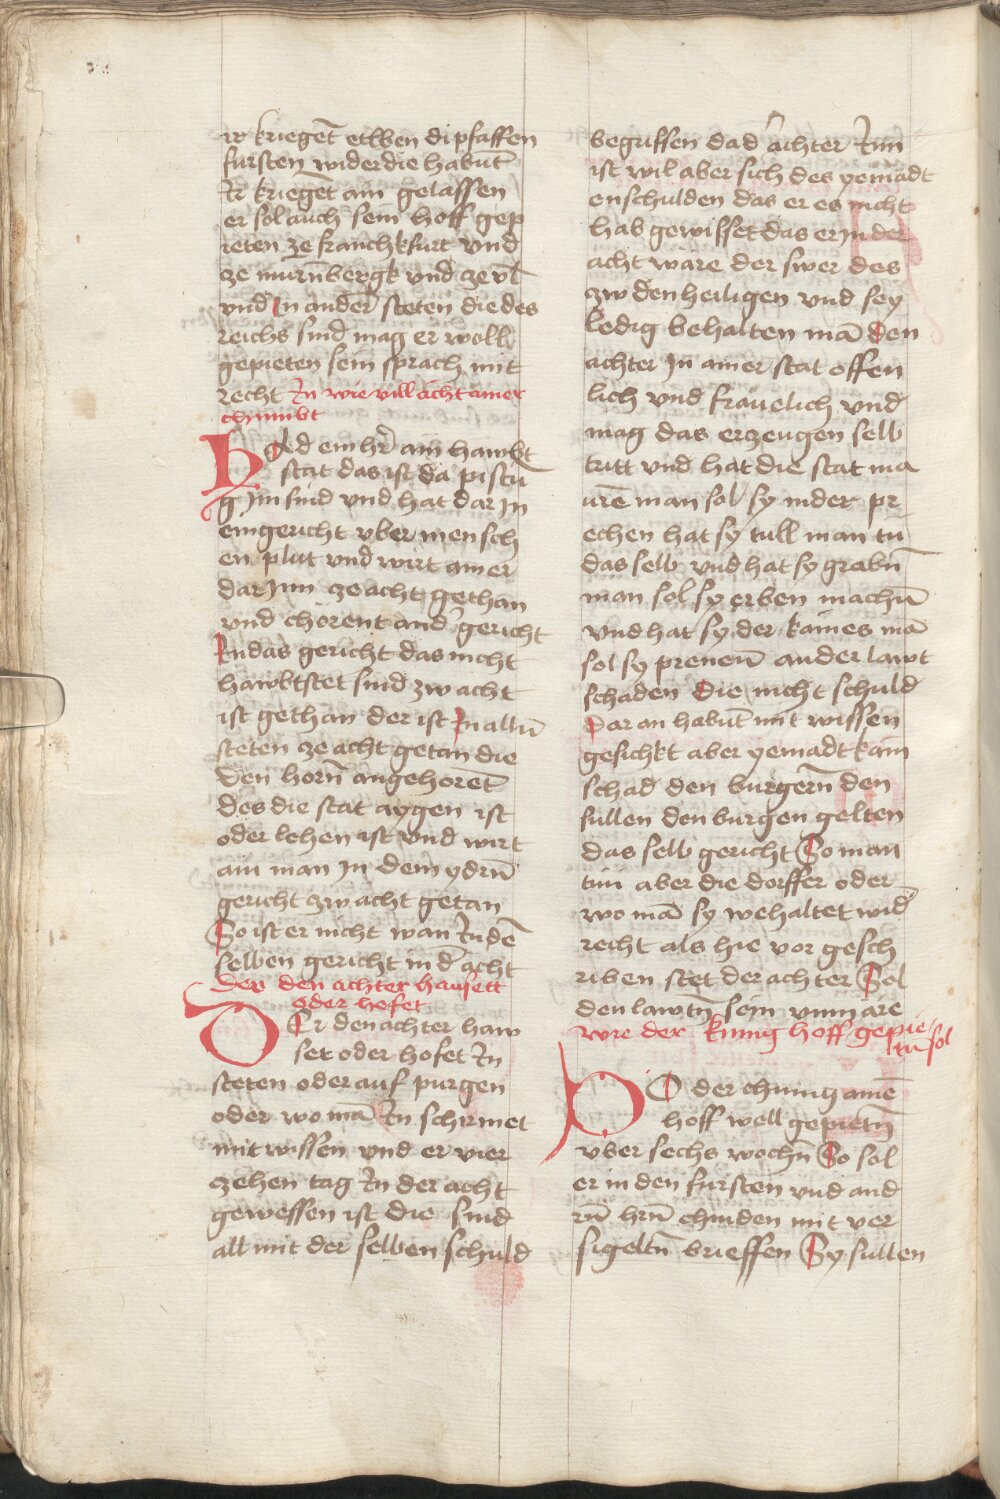 ir krieget etlben di pfaffen
fursten wider die habnt
Ir krieget ain gelassen
er sol auch sein hoff gep
ieten ze franchkfurt vnd
ze nurnbergk vnd ze vl
vnd In ander steten die des
reichs sind mag er woll
gepieten sein sprach mit
recht In wie vill acht ainer
chumbt
Had ein hr ain hawbt
stat das ist da pistu
g Im sind vnd hat dar In
ein gericht vber mensch
en plut vnd wirt ainer
dar Inn ze acht gethan
vnd chorent and gericht
In das gericht das nicht
hawbtstet sind zw acht
ist gethan der ist In alln
steten ze acht getan die
den horn angehoret
des die stat aygen ist
oder lehen ist vnd wirt
ain man In dem ydrn
gericht zw acht getan
So ist er nicht wan In de
selben gericht in d acht
Der den achter hausett
oder hofet
Er den achter haw
set oder hofet In
steten oder auf purgen
oder wo ma In schirmet
mit wissen vnd er vier
zehen tag In der acht
gewessen ist die sind
all mit der selben schuld
begriffen da d achter Inn
ist wil aber sich des yemadt
enschulden das er es nicht
hab gewisset das er In der
acht ware der swer des
zw den heiligen vnd sey
ledig behalten ma den
achter In ainer stat offen
lich vnd frauelich vnd
mag das erzeugen selb
tritt vnd hat die stat ma
ure man sol sy nider pr
echen hat sy tull man tu
das selb vnd hat sy grabn
man sol sy erben machn
vnd hat sy der kaines ma
sol sy prenen an der lawt
schaden Die nicht schuld
Dar an habnt mit wissen
gesichkt aber yemadt kain
schad den burgern den
sullen den burgen gelten
das selb gericht So man
tun aber die dorffer oder
wo ma sy wehaltet wid
recht als hie vor gesch
riben stet der achter Sol
den lawtn sein vnmare
wie der kunig hoff gepie
tn sol
So der chunig aine
hoff well gepietn
vber sechs wochn So sol
er in den fursten vnd and
rn hrn chunden mit ver
sigeltn brieffen Sy sullen